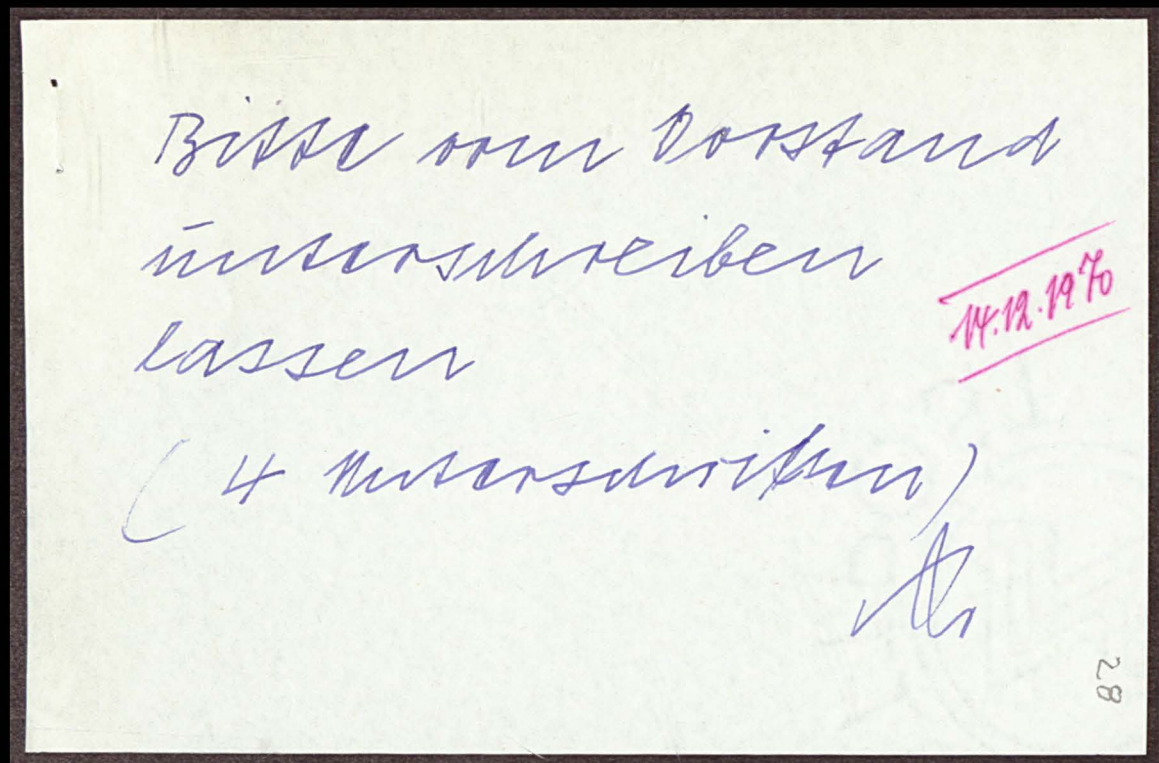 Bitte vom Vorstand
unterschreiben
14.12.1970
lassen
(4 Unterschriften)
28